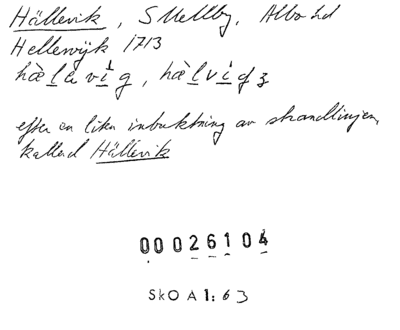 Hällevik, S Mellby, Albo hd
Hellewijk 1713
hælevig, hælvigz
efter en liten inbuktning av strandlinjen,
kallad Hällevik
00026104
SkO A 1: 63